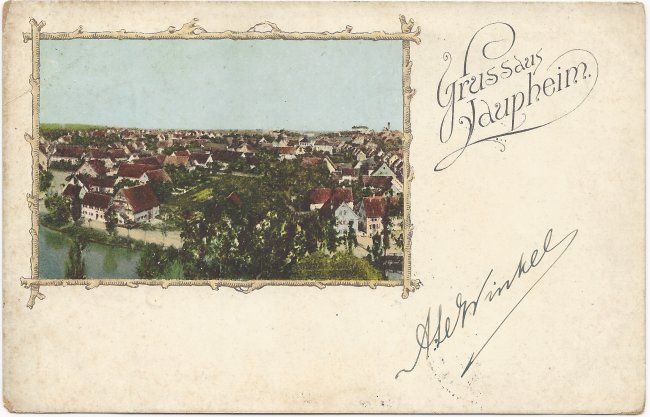 Gruss aus
Laupheim.
Winkel